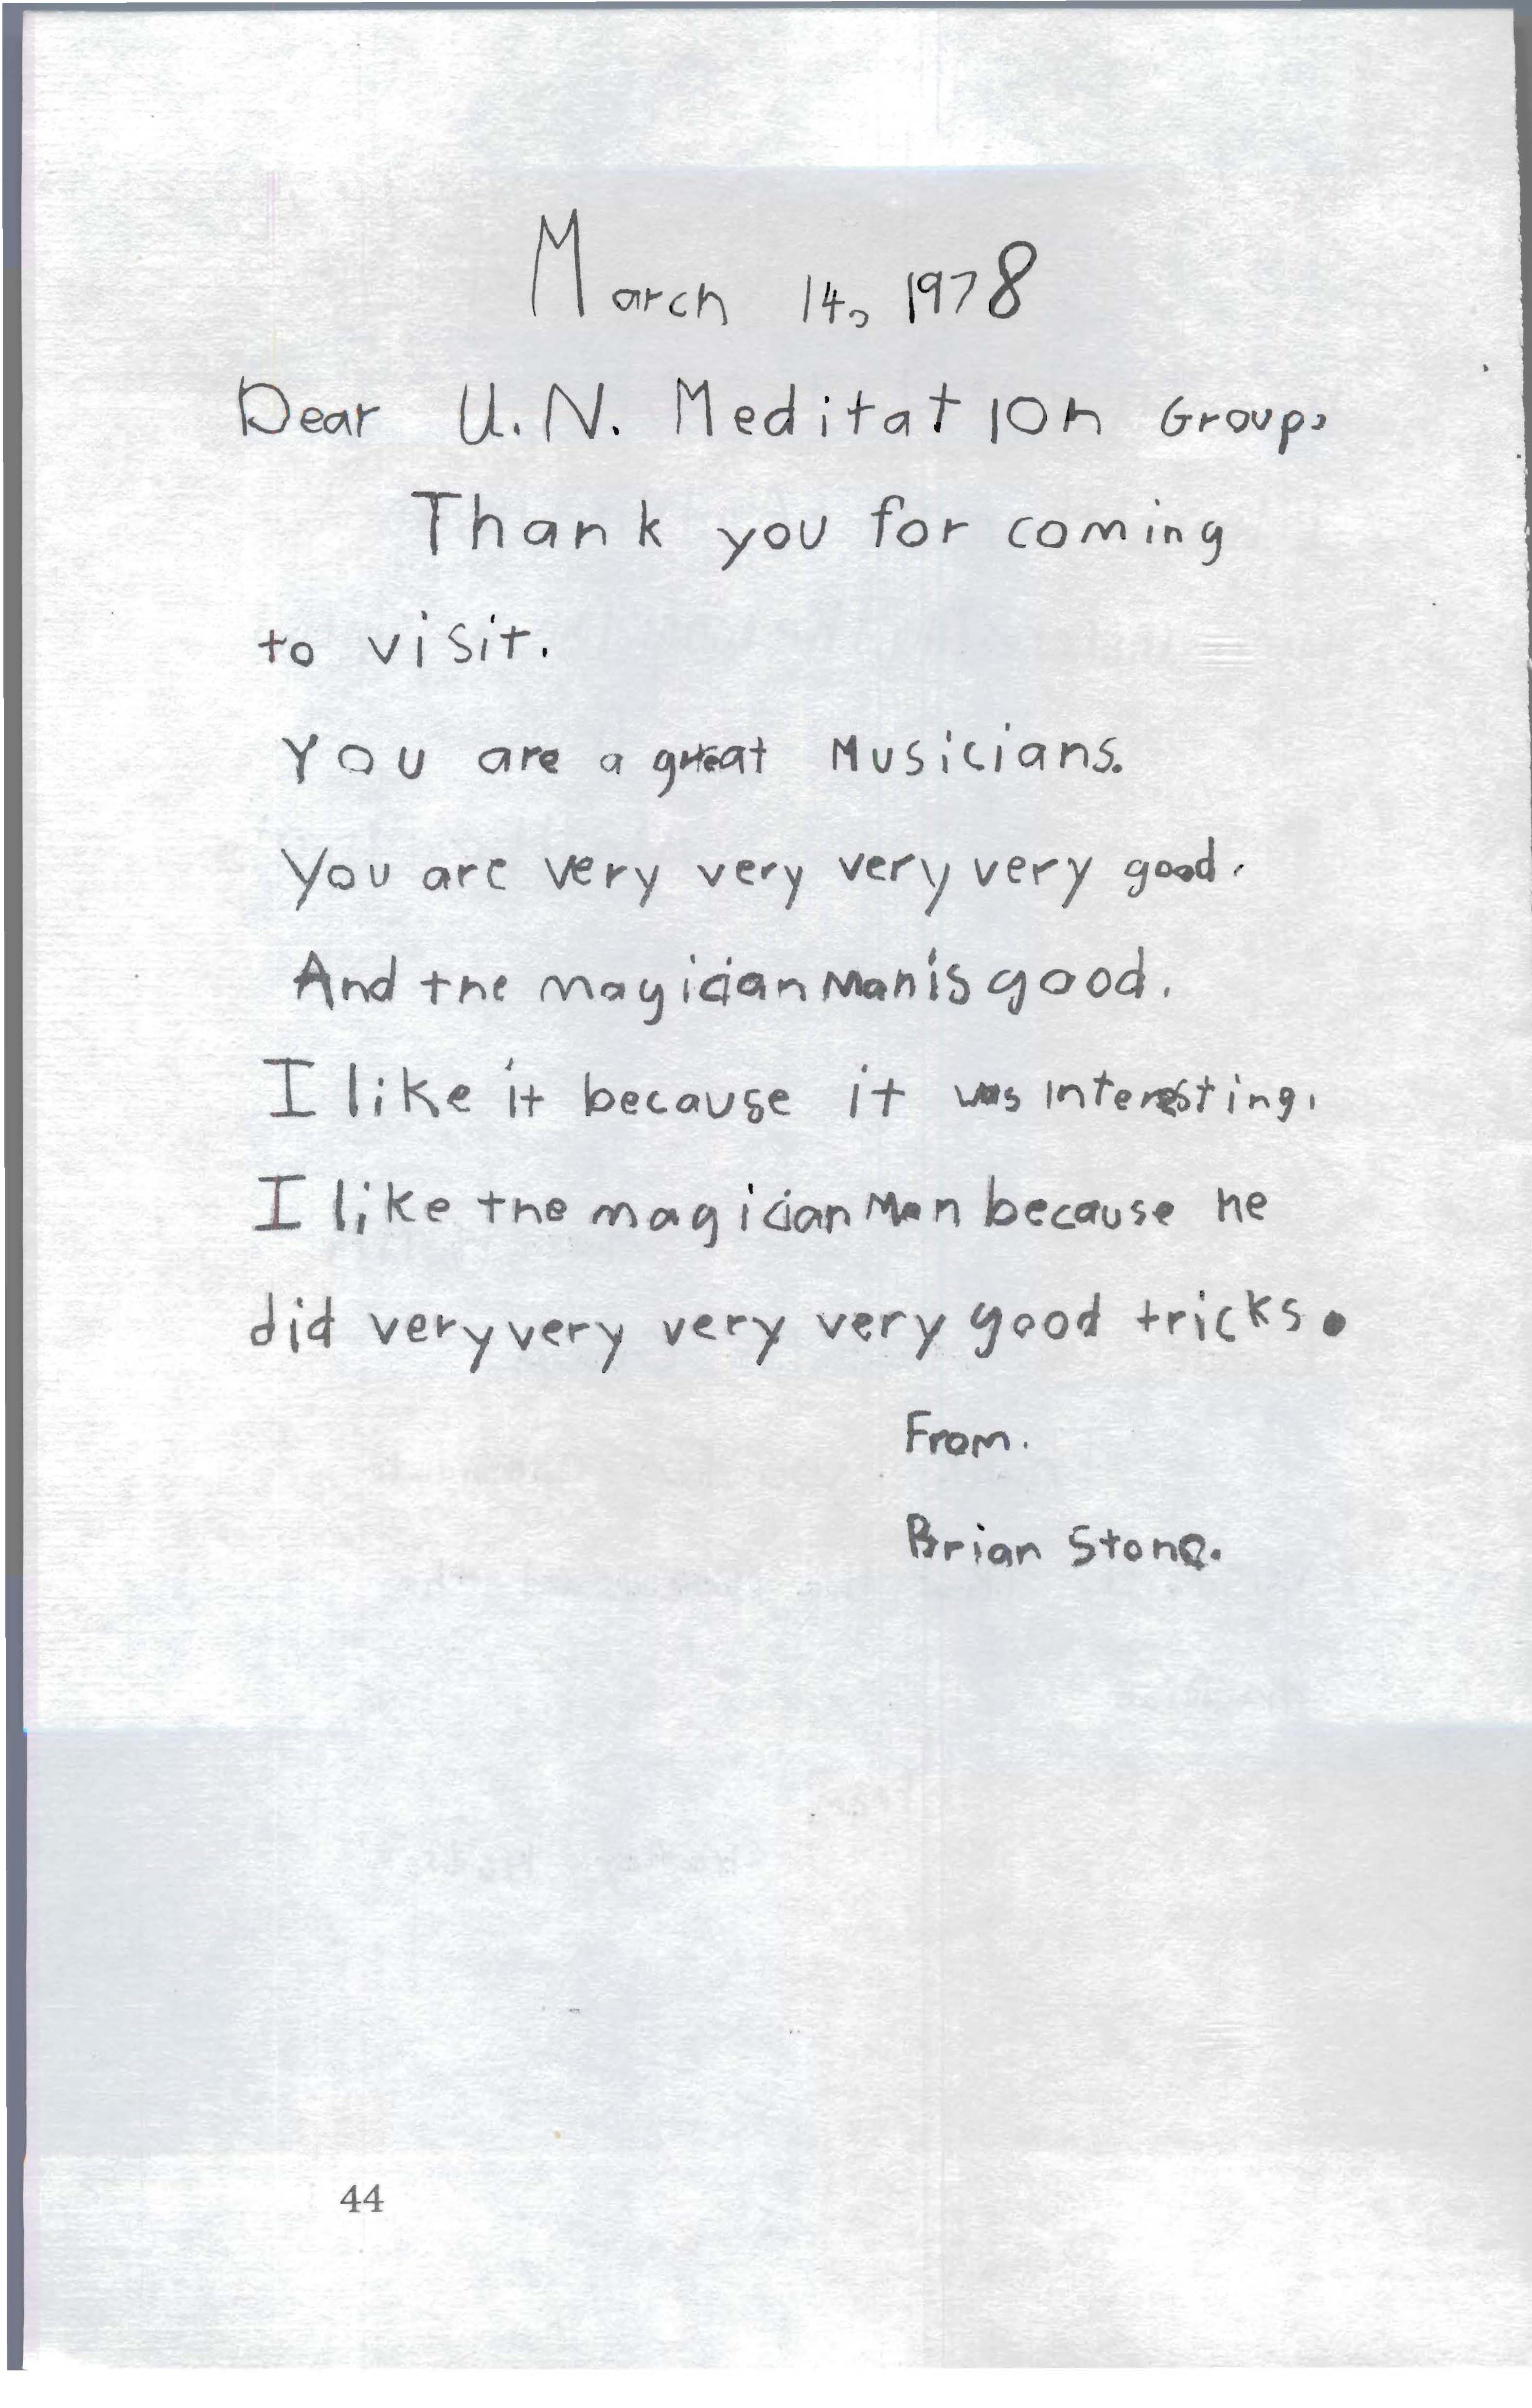 March 14, 1978
Dear U.N. Meditation Group,
Thank you for coming
to visit.
You are a great Musicians.
You are very very very very good.
And the magician man is good.
I like it because it was interesting.
I like the magician Man because he
did very very very very good tricks.
From.
Brian Stone.
44